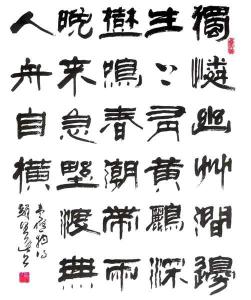 獨憐幽艸澗邊
生上有黃鸝深
樹鳴春潮帶雨
晚来急野渡無
人舟自橫
韋應物詩